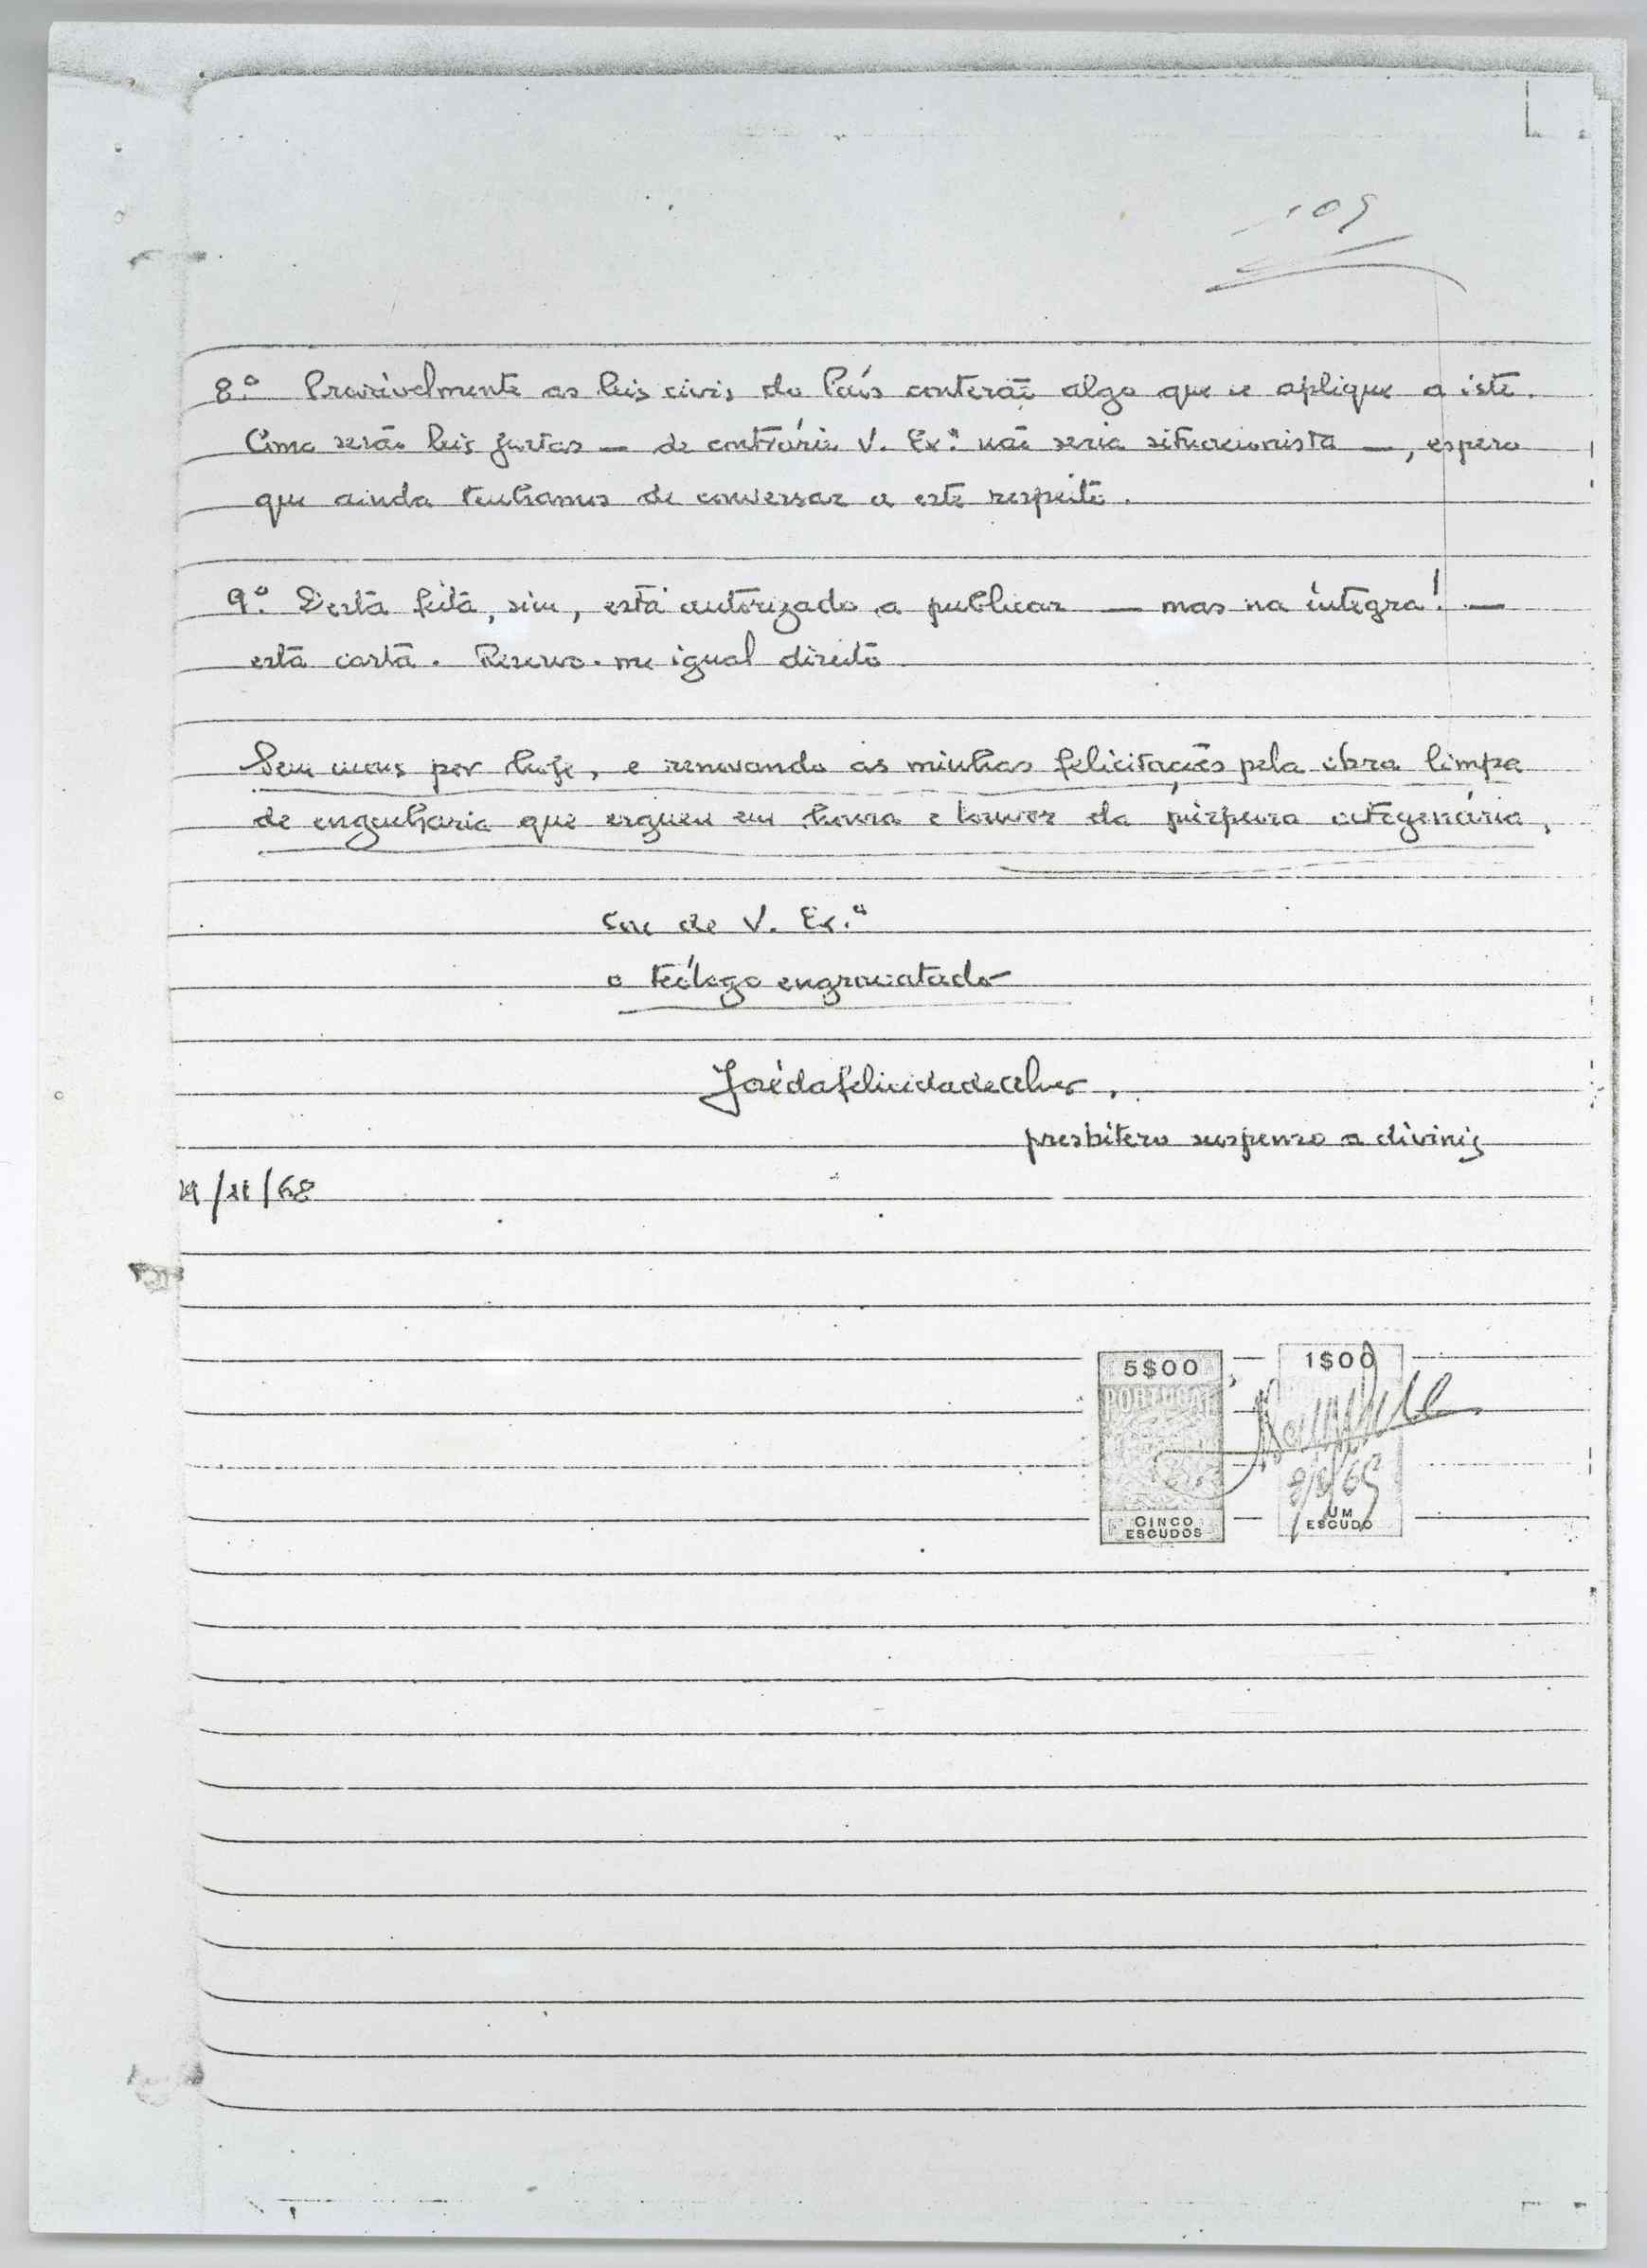 109
8.º Provàvelmente as leis civis do País conterão algo que se aplique a isto.
Como serão leis justas — de contrário V. Ex.ª não seria situacionista —, espero
que ainda tenhamos de conversar a este respeito.
9.º Desta feita, sim, está autorizado a publicar — mas na íntegra! —
esta carta. Reservo-me igual direito
Sem mais por hoje, e renovando as minhas felicitações pela obra limpa
de engenharia que ergueu em honra e louvor da púrpura octogenária,
sou de V. Ex.ª
o teólogo engravatado
José da Felicidade Alves,
presbítero suspenso a divinis
/11/68
5$00
PORTUGAL
CINCO
ESCUDOS
1$00
UM
ESCUDO